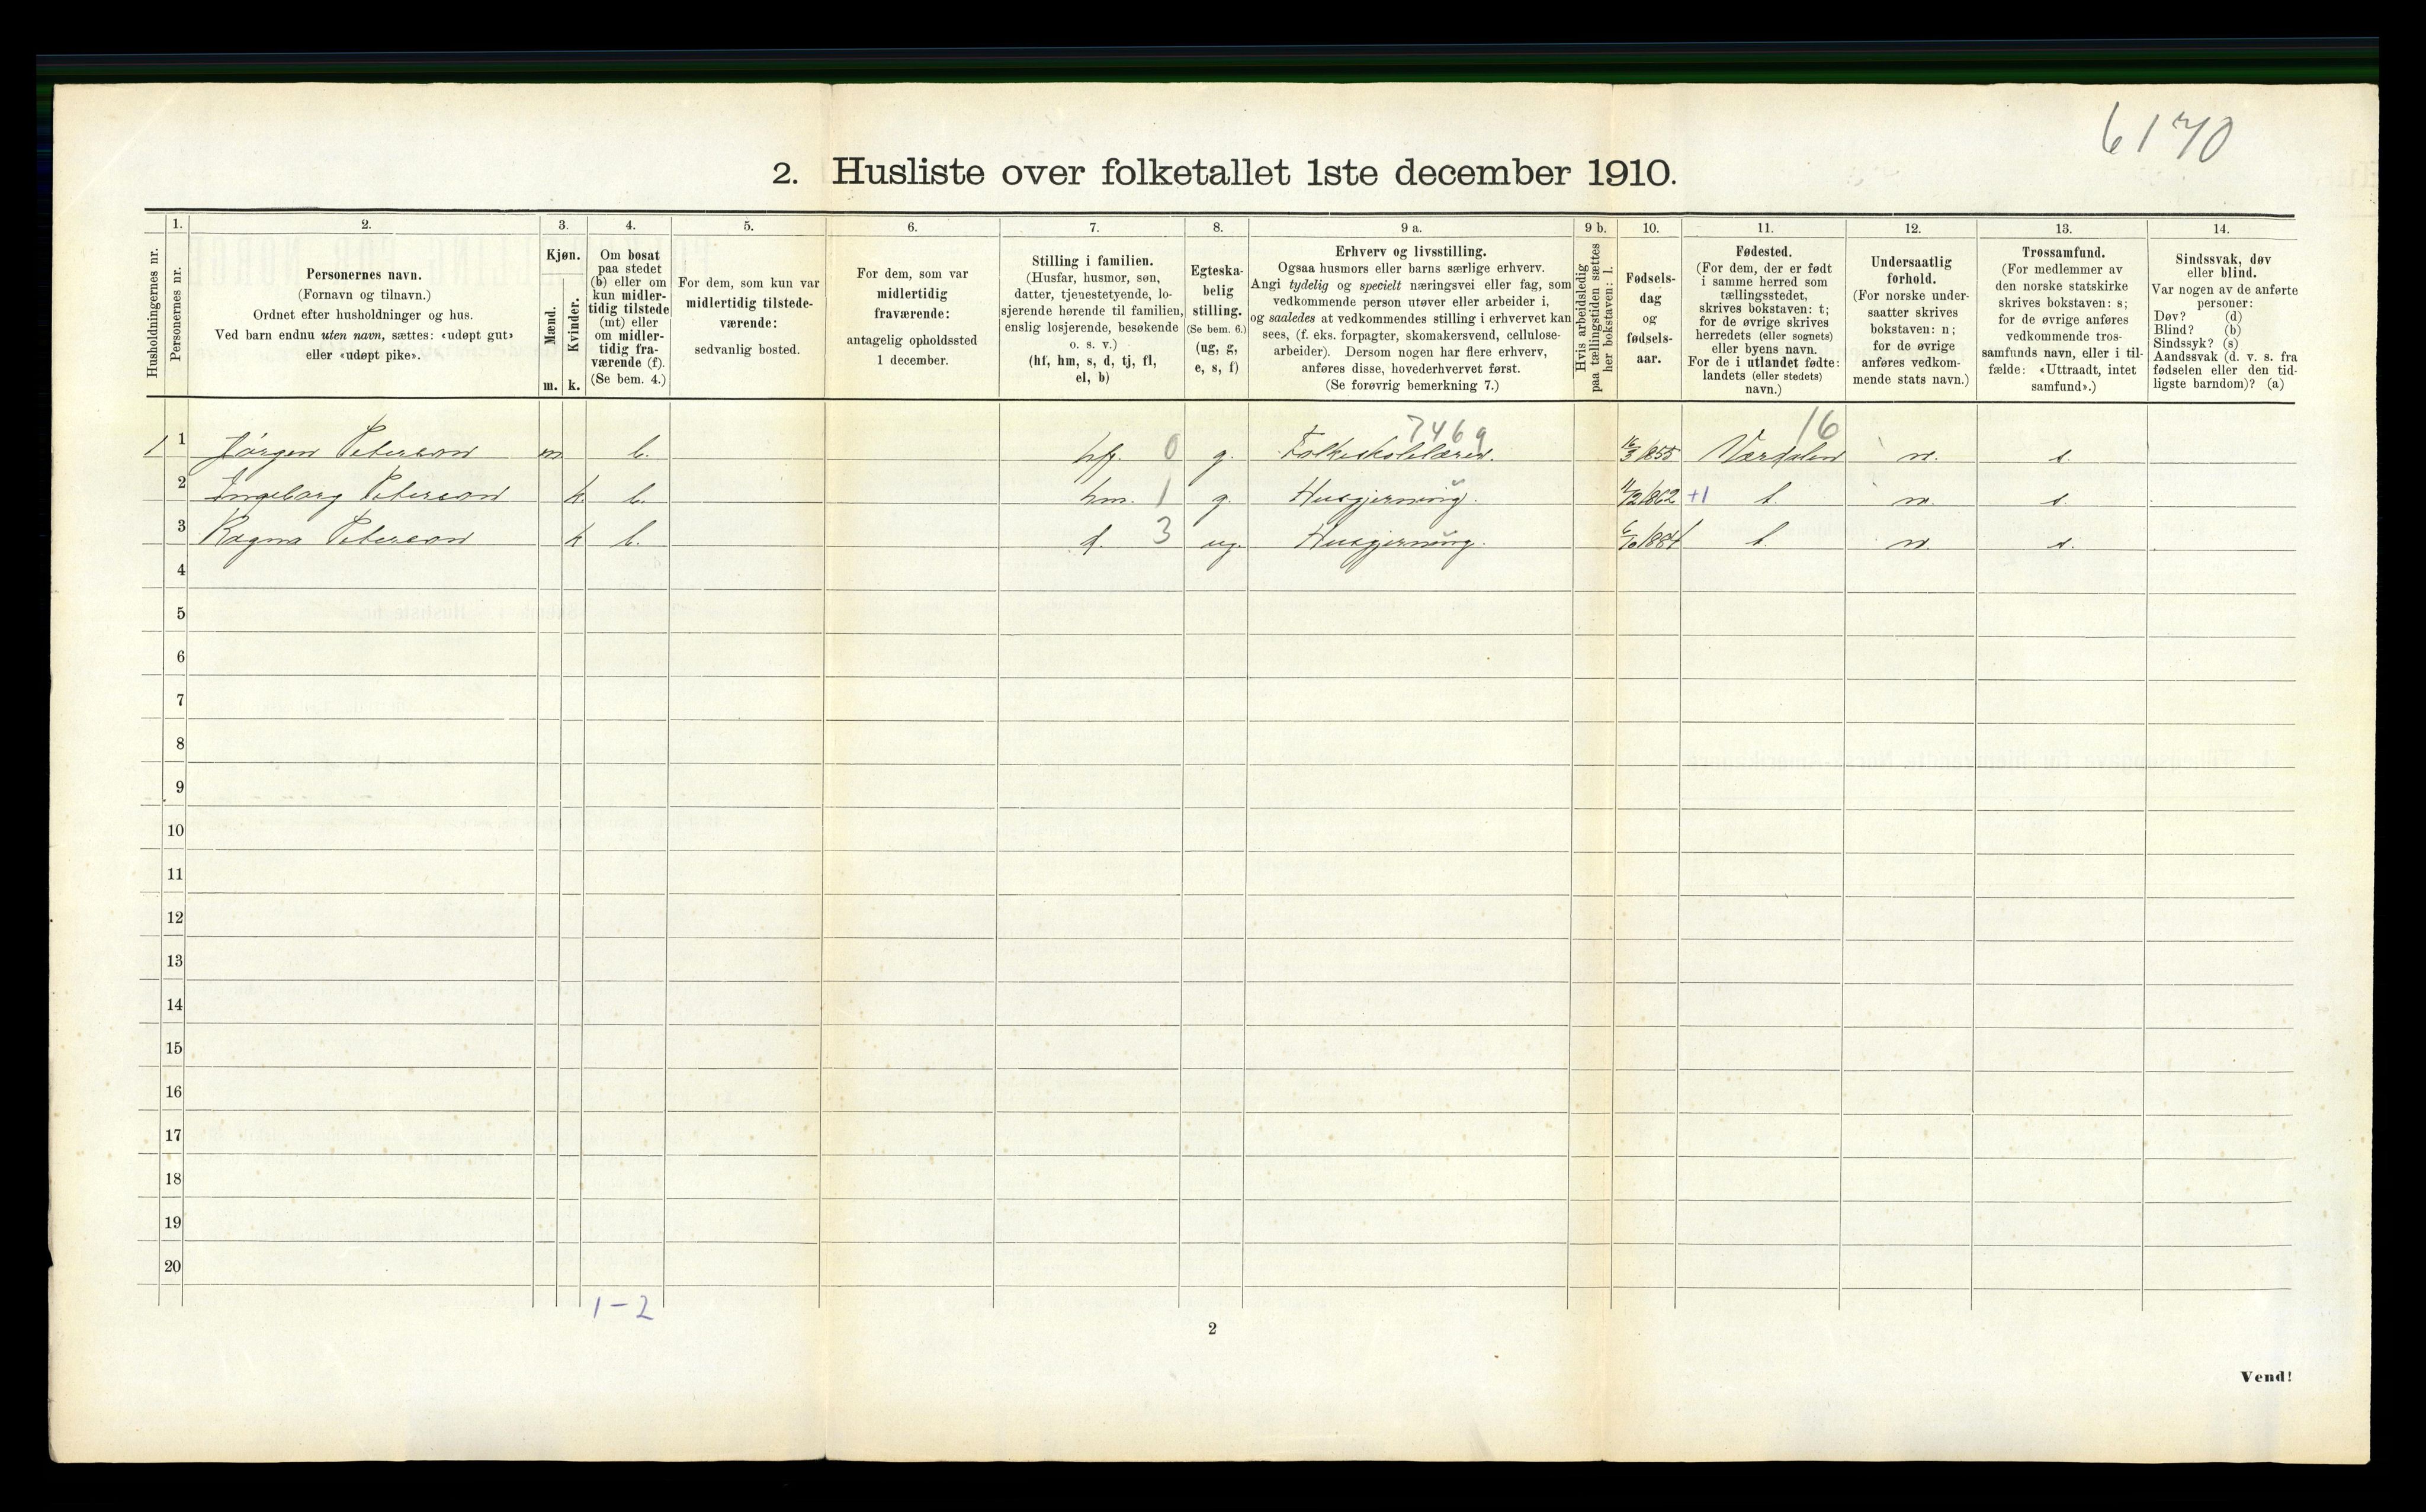 6170
2. Husliste over folketallet 1ste december 1910.
Husholdningernes nr.
1.
Personernes nr.
2.
Personernes navn.
(Fornavn og tilnavn.)
Ordnet efter husholdninger og hus.
Ved barn endnu uten navn, sættes: «udøpt gut»
eller «udøpt pike».
3.
Kjøn.
Mænd.
Kvinder.
m. k.
4.
Om bosat
paa stedet
(b) eller om
kun midler-
tidig tilstede
(mt) eller
om midler-
tidig fra-
værende (f).
(Se bem. 4.)
5.
For dem, som kun var
midlertidig tilstede-
værende:
sedvanlig bosted.
6.
For dem, som var
midlertidig
fraværende:
antagelig opholdssted
1 december.
7.
Stilling i familien.
(Husfar, husmor, søn,
datter, tjenestetyende, lo-
sjerende hørende til familien,
enslig losjerende, besøkende
o. s. v.)
(hf, hm, s, d, tj, fl,
el, b)
8.
Egteska-
belig
stilling.
(Se bem. 6.)
(ug, g,
e, s, f)
9 a.
Erhverv og livsstilling.
Ogsaa husmors eller barns særlige erhverv.
Angi tydelig og specielt næringsvei eller fag, som
vedkommende person utøver eller arbeider i,
og saaledes at vedkommendes stilling i erhvervet kan
sees, (f. eks. forpagter, skomakersvend, cellulose-
arbeider). Dersom nogen har flere erhverv,
anføres disse, hovederhvervet først.
(Se forøvrig bemerkning 7.)
9 b.
Hvis arbeidsledig
paa tællingstiden sættes
her bokstaven: l.
10.
Fødsels-
dag
og
fødsels-
aar.
11.
Fødested.
(For dem, der er født
i samme herred som
tællingsstedet,
skrives bokstaven: t;
for de øvrige skrives
herredets (eller sognets)
eller byens navn.
For de i utlandet fødte:
landets (eller stedets)
navn.)
12.
Undersaatlig
forhold.
(For norske under-
saatter skrives
bokstaven: n;
for de øvrige
anføres vedkom-
mende stats navn.)
13.
Trossamfund.
(For medlemmer av
den norske statskirke
skrives bokstaven: s;
for de øvrige anføres
vedkommende tros-
samfunds navn, eller i til-
fælde: «Uttraadt, intet
samfund».)
14.
Sindssvak, døv
eller blind.
Var nogen av de anførte
personer:
Døv? (d)
Blind? (b)
Sindssyk? (s)
Aandssvak (d. v. s. fra
fødselen eller den tid-
ligste barndom)? (a)
7469 16
1 1 Jörgen Peterson m b. hf. 0 g. Folkeskolelærer. 16/3 1855 Værdalen n. s.
2 Ingeborg Peterson k b. hm. 1 g. Husgjerning. 11/12 1862 +1 t. n. s.
3 Ragna Peterson k b. d. 3 ug. Husgjerning. 6/10 1884 t. n. s.
4
5
6
7
8
9
10
11
12
13
14
15
16
17
18
19
20
1-2
2
Vend!